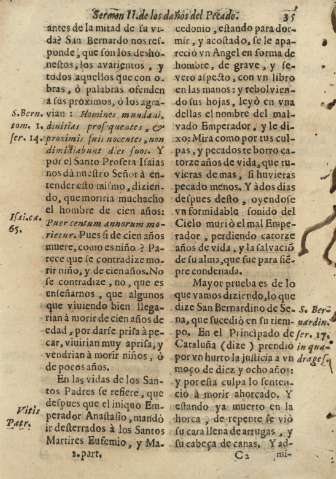 Sermon II. de los daños del Pecado. 35
antes de la mitad de su vi-
da? San Bernardo nos res-
ponde, que son los desho-
nestos, los avarientos, y
todos aquellos que con o-
bras, ò palabras ofenden
a sus proximos, ò los agra-
vian: Homines mundani,
divitias prosequentes, &
proximis suis nocentes, non
dimidiabunt dies suos. Y
por el Santo Profeta Isaias
nos dà nuestro Señor à en-
tender esto mismo, dizien-
do, que moriria muchacho
el hombre de cien años:
Puer centum annorum mo-
rietur. Pues si de cien años
muere, como es niño? Pa-
rece que se contradize mo-
rir niño, y de cien años. No
se contradize, no, que es
enseñarnos, que algunos
que viviendo bien llega-
rian à morir de cien años de
edad, por darse prisa à pe-
car, viuirian muy aprisa, y
vendrian à morir niños, ò
de pocos años.
En las vidas de los San-
tos Padres se refiere, que
despues que el iniquo Em-
perador Anastasio, mandò
ir desterrados à los Santos
Martires Eufemio, y Ma-
2. part.
S. Bern.
tom. 1.
ser. 14.
Isai. ca.
65.
Vitis
Patr.
cedonio, estando para dor-
mir, y acostado, se le apa-
reciò vn Angel en forma de
hombre, de grave, y se-
vero aspecto, con vn libro
en las manos: y rebolvien-
do sus hojas, leyò en vna
dellas el nombre del mal-
vado Emperador, y le di-
xo: Mira como por tus cul-
pas, y pecados te borro ca-
torze años de vida, que tu-
vieras de mas, si huvieras
pecado menos. Y à dos dias
despues desto, oyendose
vn formidable sonido del
Cielo muriò el mal Empe-
rador, perdiendo catorze
años de vida, y la salvaciò
de su alma, que fue para siẽ-
pre condenada.
Mayor prueba es de lo
que vamos diziendo, lo que
dize San Bernardino de Se-
na, que sucediò en su tiem-
po. En el Principado de
Cataluña (dize) prendiò
por vn hurto la justicia a vn
moço de diez y ocho años:
y por esta culpa lo senten-
ciò à morir ahorcado. Y
estando ya muerto en la
horca, de repente se viò
su cara llena de arrugas, y
su cabeça de canas. Y ad-
C2 mi-
S. Ber-
nardin.
ser. 17.
in qua-
drages.